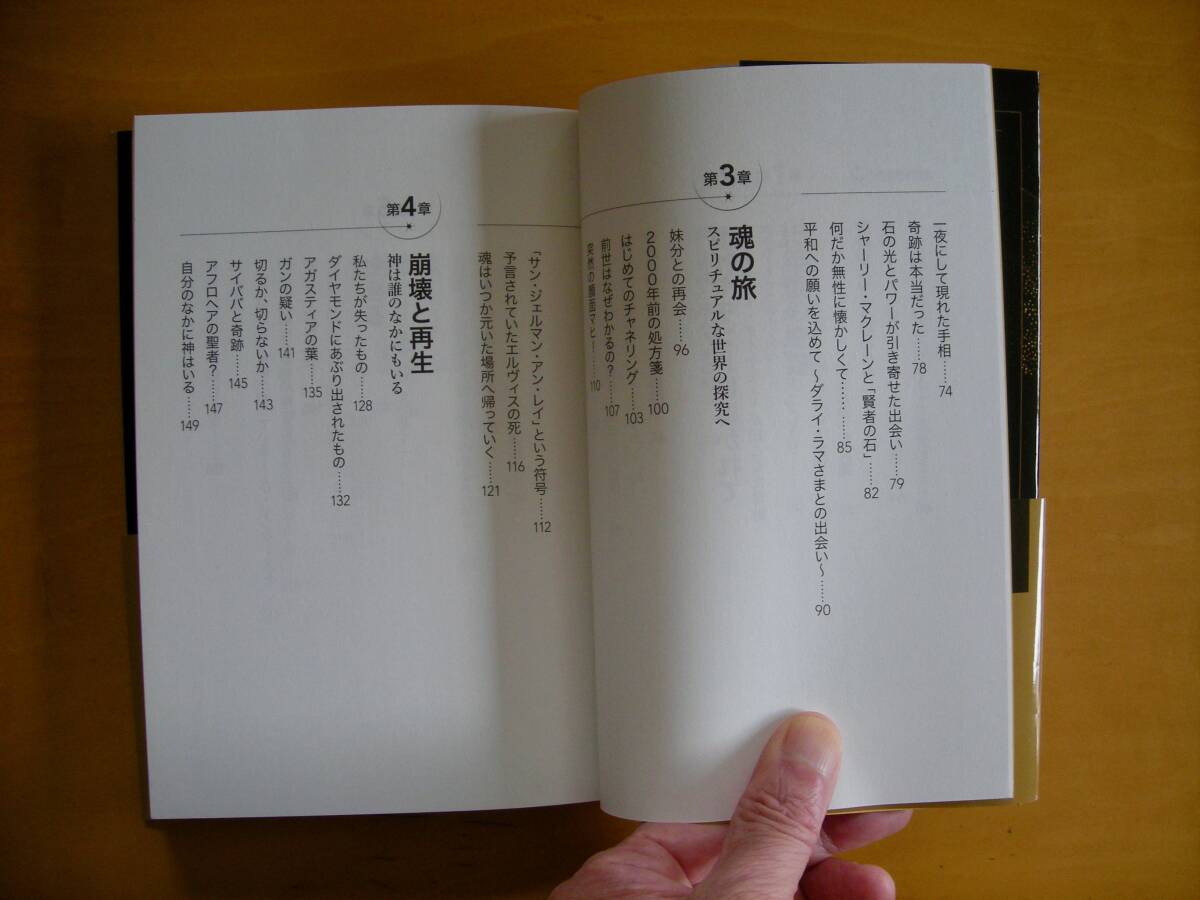 一夜にして現れた手相……74
奇跡は本当だった……78
石の光とパワーが引き寄せた出会い……79
シャーリー・マクレーンと「賢者の石」……82
何だか無性に懐かしくて…… ……85
平和への願いを込めて 〜ダライ・ラマさまとの出会い〜……90
第3章
魂の旅
スピリチュアルな世界の探究へ
妹分との再会……96
2000年前の処方箋……100
はじめてのチャネリング……103
前世はなぜわかるの?……107
突然の顔面マヒ……110
「サン・ジェルマン・アン・レイ」という符号……112
予言されていたエルヴィスの死……116
魂はいつか元いた場所へ帰っていく……121
第4章
崩壊と再生
神は誰のなかにもいる
私たちが失ったもの……128
ダイヤモンドにあぶり出されたもの……132
アガスティアの葉……135
ガンの疑い……141
切るか、切らないか……143
サイババと奇跡……145
アフロヘアの聖者?……147
自分のなかに神はいる……149